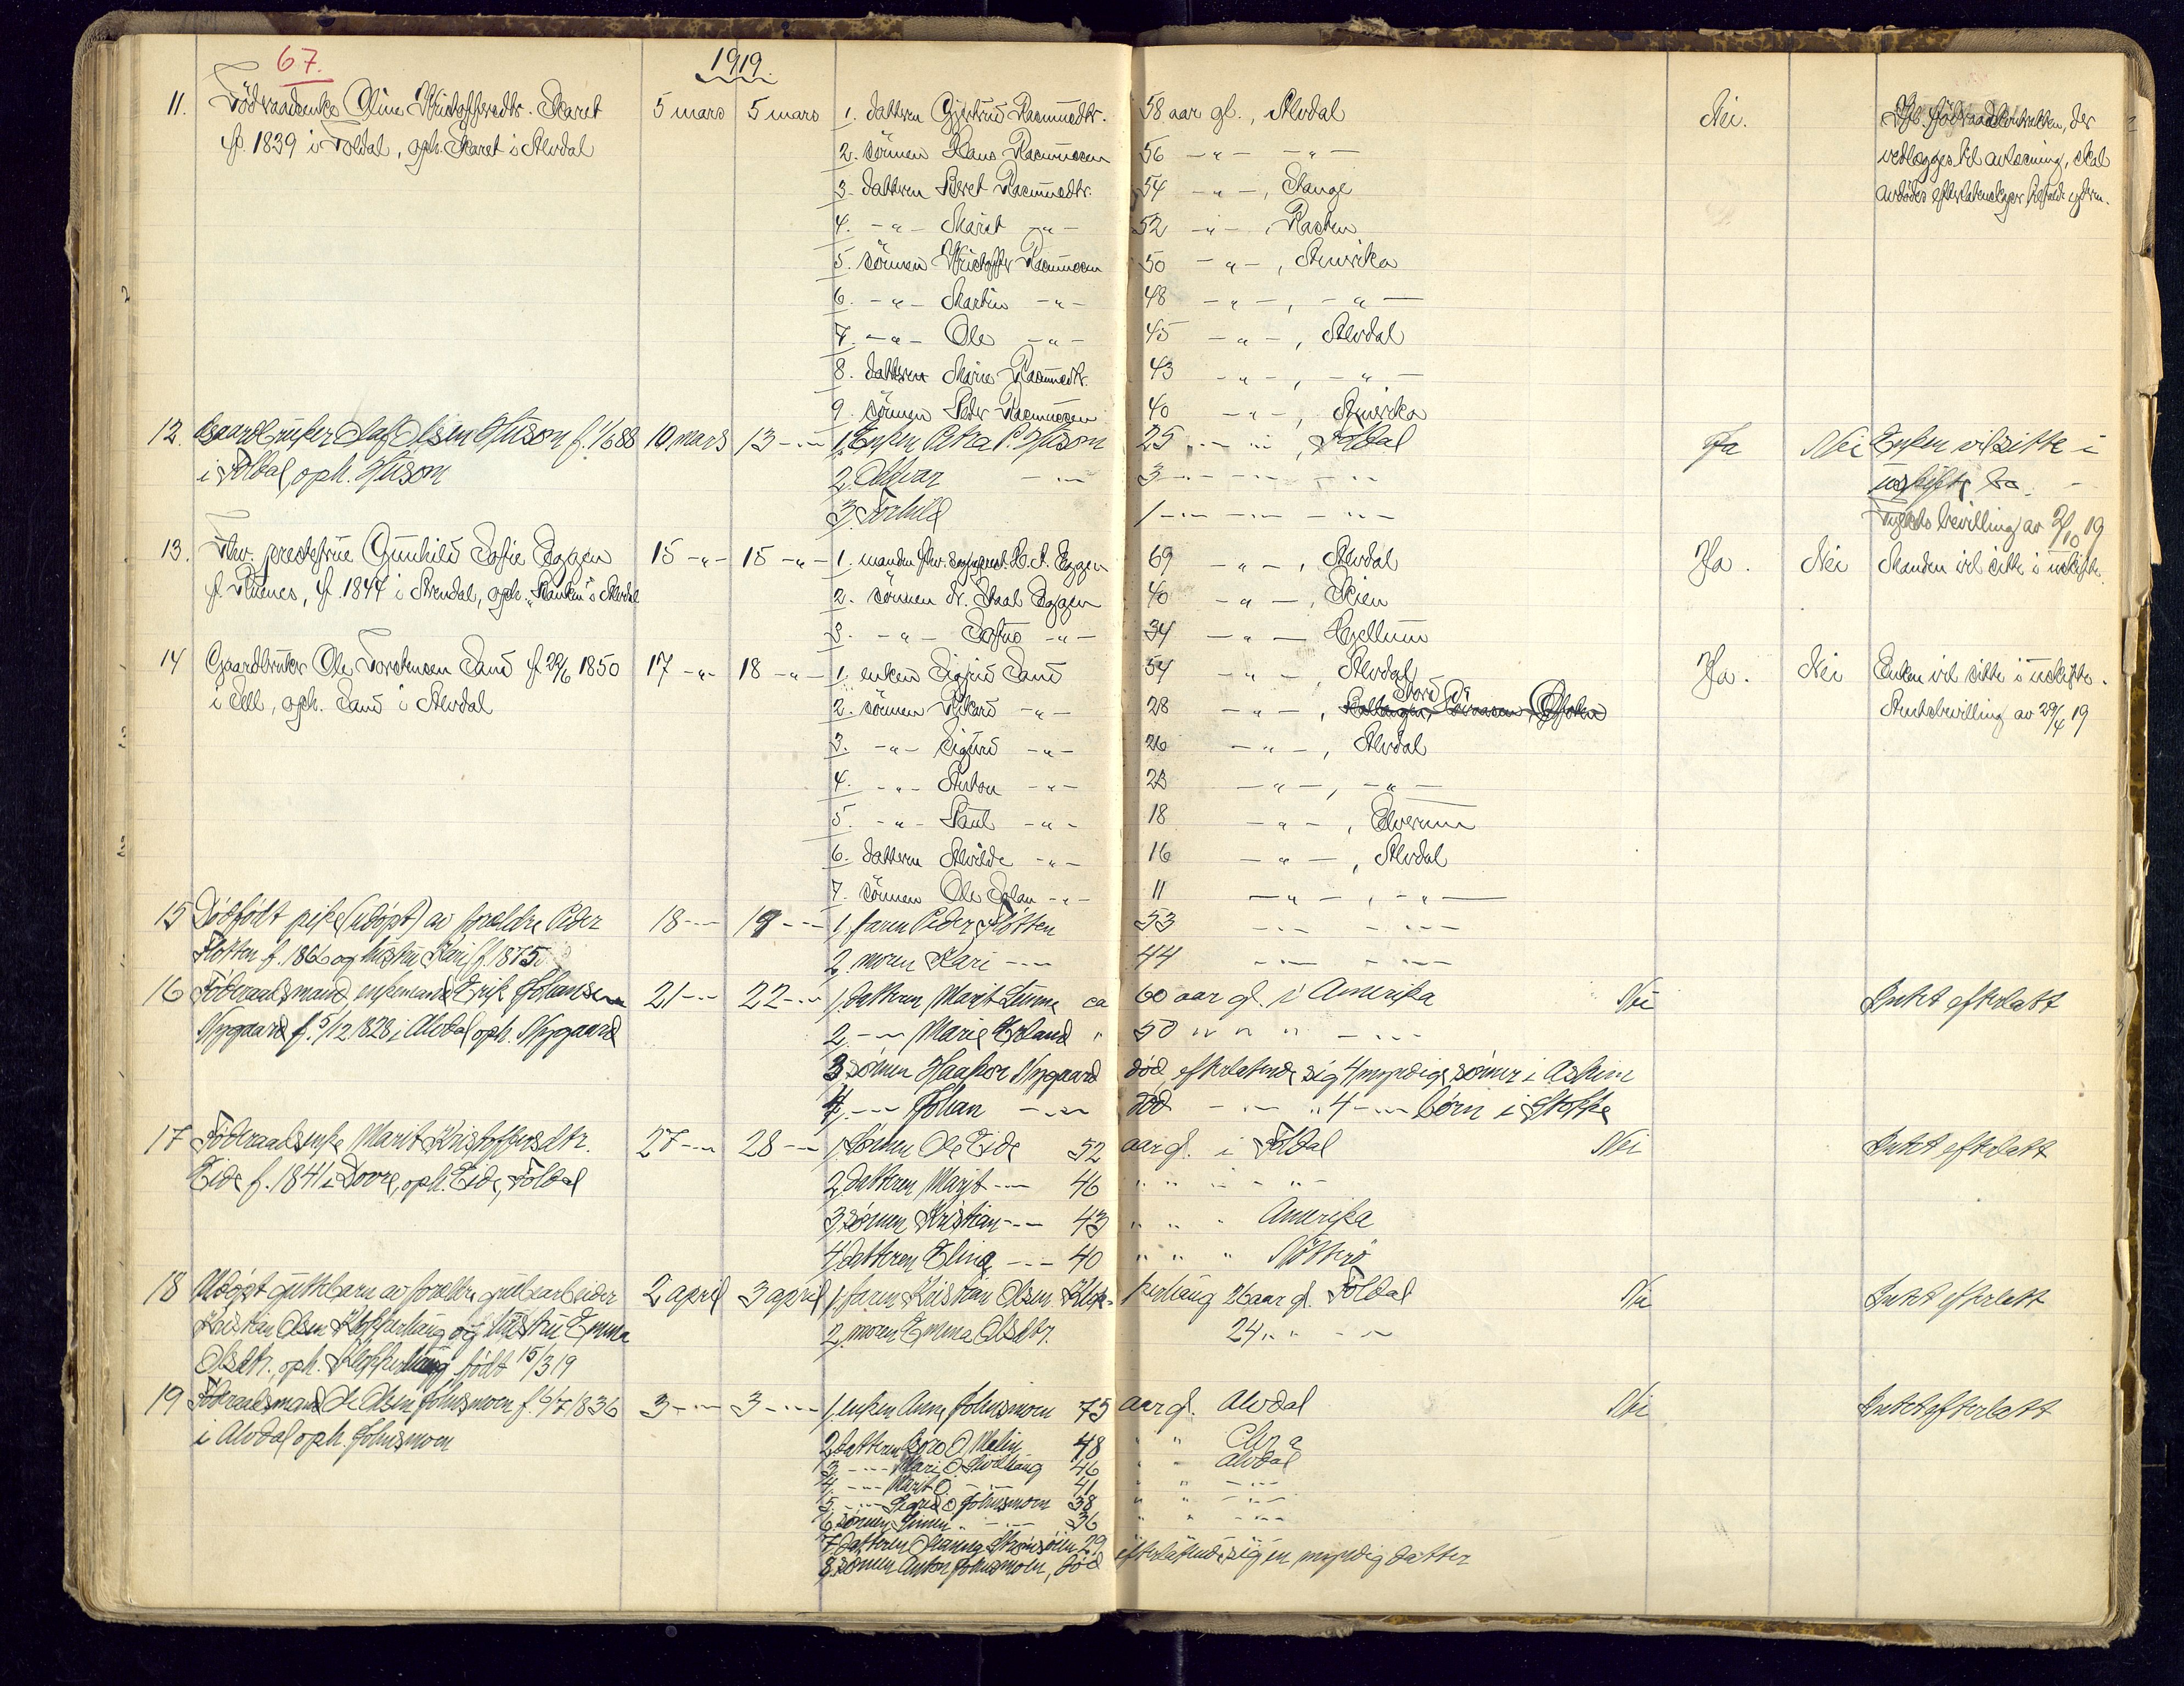 67.
1919.
11. Föderaadsenke Oline Kristoffersdtr. Skaret 5 mars 5 mars 1. datteren Gjertrud Rasmusdtr. 58 aar gl., Alvdal Nei. Ifl. föderaadskontrakten, der
f. 1839 i Foldal, oph. Skaret i Alvdal 2. sönnen Hans Rasmussen 56 -"- -"- vedlægges til avlæsning, skal
3. datteren Beret Rasmusdtr. 54 -"-, Stange avdödes efterladenskaper
4. -"- Marit -"- 52 -"-,
5. sönnen Kristoffer Rasmussen 50 -"-, Amerika
6. -"- Martin -"- 48 -"-, -"-
7. -"- Ole -"- 45 -"-, Alvdal
8. datteren Marie Rasmusdtr. 43 -"-, -"-
9. sönnen Peder Rasmussen 40 -"-, Amerika
12. Gaardbruker Olaf Olsen Husom f. 1/6 88 10 mars 13 -"- 1, Enken P. Husom 25 -"-, Foldal Ja Nei Enken vil sitte i
i Foldal, oph. Husom 2, -"- 3 -"- -"- uskifte
3, Torhild 1 -"- -"- -"- bevilling av 2/10 19
13. Fhv. prestefrue Gunhild Sofie Eggen 15 -"- 15 -"- 1. manden fhv. sogneprest Eggen 69 -"-, Alvdal Ja. Nei Manden vil sitte i uskifte.
f. 1844 i Arendal, oph. i Alvdal 2. sönnen dr. Paal Eggen 40 -"-, Skien
3. -"- -"- 34 -"- Hjellum
14 Gaardbruker Ole Torstensen Sand f. 29/6 1850 17 -"- 18 -"- 1. enken Sigrid Sand 54 -"-, Alvdal Ja. Nei Enken vil sitte i uskifte.
i Sell, oph. Sand i Alvdal 2. sönnen Rikard -"- 28 -"-, Amtsbevilling av 29/4 19
3. -"- Sigurd -"- 26 -"-, Alvdal
4. -"- Anton -"- 23 -"-, -"-
5. -"- Paul -"- 18 -"-, Elverum
6. datteren Alvilde -"- 16 -"-, Alvdal
7. sönnen Ole -"- 11 -"-, -"-
15 Dödfödt pike (udöpt) av forældre Peder 18 -"- 19 -"- 1, faren Peder Flötten 53 -"- -"-
Flotten f. 1866 og hustru Kari f. 1875. 2, moren Kari -"- 44 -"- -"-
16 Föderaadsmand, enkemand Erik Johansen 21 -"- 22 -"- 1, datteren Marit ca 60 aar gl. i Amerika Nei Intet efterlatt
Nygaard f. 5/12 1828 i Alvdal oph. Nygaard 2, -"- Marie " 50 " " " -"-
3 sönnen Haakon Nygaard död, efterlatende sig 4 myndige sönner i Askim
4, -"- Johan -"- död -"- " 4 -"- börn i Stokke
17 Föderaadsenke Marit Kristoffersdtr. 27 -"- 28 -"- 1, sönnen Ole Eide 52 aar gl. i Foldal Nei Intet efterlatt
Eide f. 1841 i Dovre, oph. Eide, Foldal 2, datteren Marit -"- 46 " " " -"-
3, sönnen Kristian -"- 43 " " " Amerika
4, datteren Eline -"- 40 " " " Nötterö
18 Udöpt guttebarn av forældre grubearbeider 2 april 3 april 1, faren Kristian Olsen Klop- perhaug 26 aar gl. Foldal Nei Intet efterlatt
Kristian Olsen Klopperhaug og hustru Emma 2, moren Emma Olsdtr. 24 " " -"-
Olsdtr., oph. Klopperhaug födt 15/3 19
19 Föderaadsmand Ole Olsen Johnsmoen f. 6/7 1836 3 -"- 3 -"- 1, enken Anne Johnsmoen 75 aar gl. Alvdal Nei Intet efterlatt
i Alvdal oph. Johnsmoen 2, datteren O. 48 " " Chr.a
3, -"- Mari O. 46 " " Alvdal
4, -"- Marit O. -"- 41 " " -"-
5, -"- Sigrid O. Johnsmoen 38 " " -"-
6 sönnen -"- 36 " " -"-
7 datteren 29
8, sönnen Anton Johnsmoen, död efterlatende sig en myndig datter